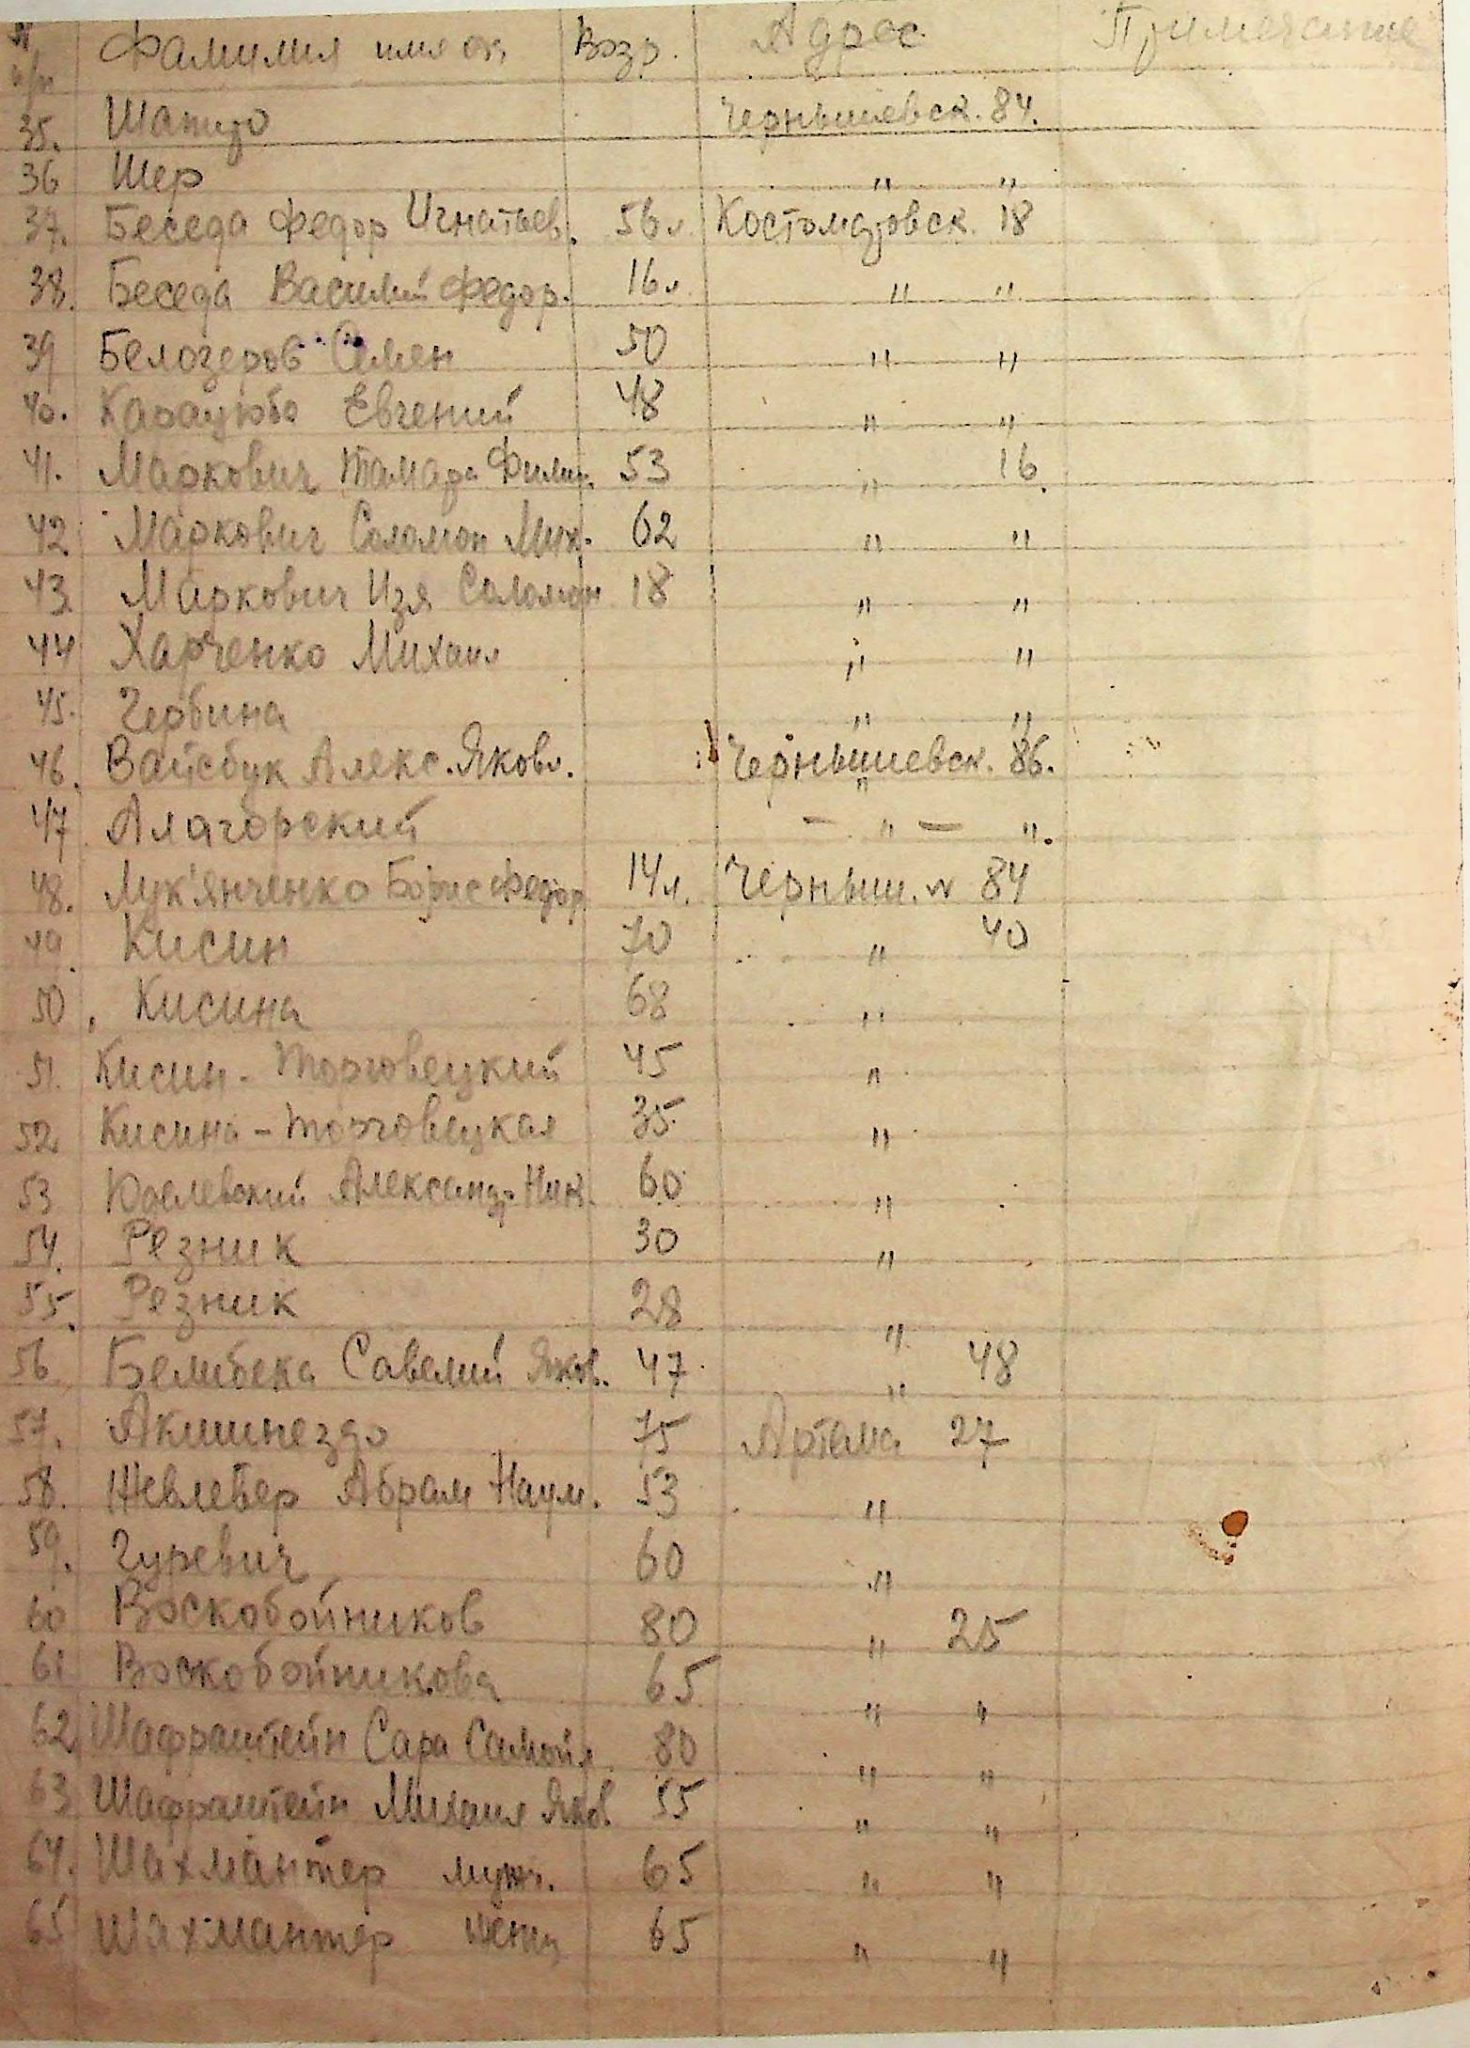 № п/п Фамилия имя от. Возр. Адрес Примечание
35. Шапиро Чернышевск. 84.
36 Шер " "
37. Беседа Федор Игнатьев. 56 л. Костомаровск. 18
38. Беседа Василий Федор. 16 л. " "
39 Белозеров Семен 50 " "
40. Евгений 48 " "
41. Маркович Тамара Филип. 53 " 16.
42 Маркович Соломон Мих. 62 " "
43. Маркович Изя Соломон 18 " "
44 Харченко Михаил " "
45. Чербина " "
46. Вайсбук Алекс. Яковл. Чернышевск. 86.
47 Алагорский — " — ".
48. Лук'янченко Борис Федор. 14 л. Черныш. № 84
49. Кисин 70 " 40
50. Кисина 68 "
51. Кисин - Торговецкий 45 "
52 Кисина - Торговецкая 35 "
53 Александр Ник. 60 "
54. Резник 30 "
55. Резник 28 "
56. Белибека Савелий Яков. 47 " 48
57. 75 Артема 27
58. Абрам Наум. 53 "
59. Гуревич 60 "
60 Воскобойников 80 " 25
61 Воскобойникова 65 " "
62 Шафраштейн Сара Самойл. 80 " "
63 Шафраштейн Михаил Яков 55 " "
64. Шахмантер муж. 65 " "
65 Шахмантер женщ 65 " "